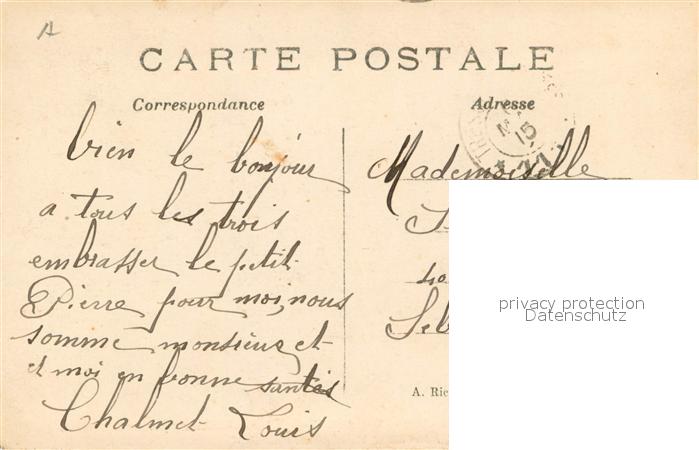 CARTE POSTALE
Correspondance
Adresse
bien le bonjour
a tous les trois
embrasser le petit
Pierre pour moi, nous
somme monsieur et
et moi en bonne santés
Chalmet Louis
Mademoiselle
40
Seb
privacy protection
Datenschutz
A. Ric
15